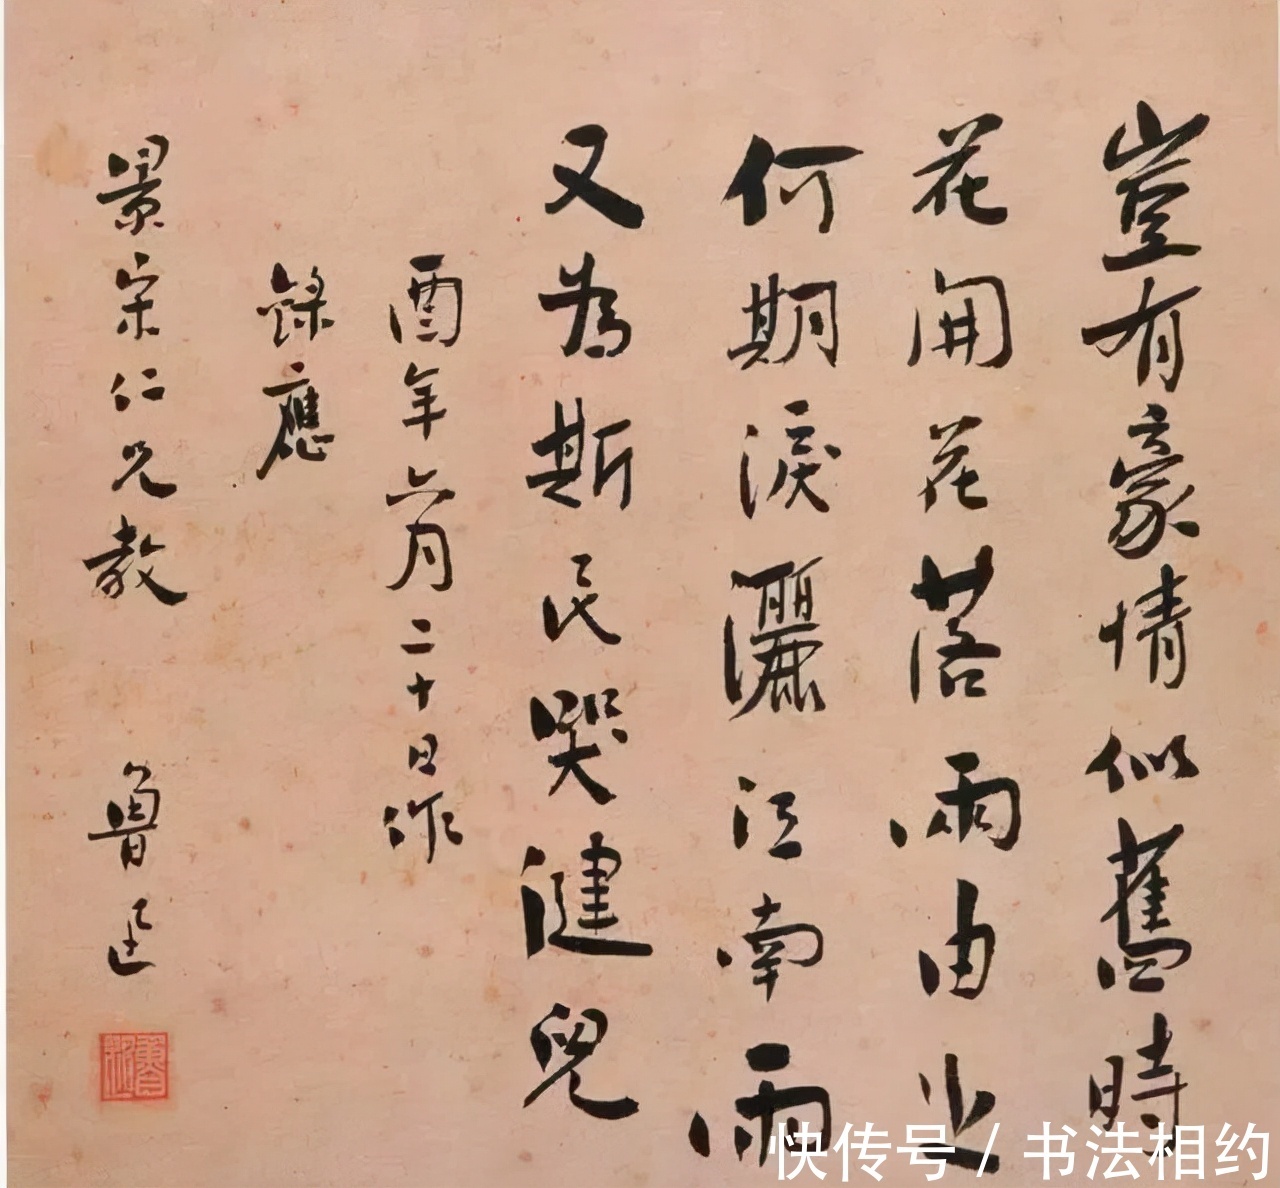 豈有豪情似舊時
花開花落兩由之
何期淚灑江南雨
又為斯民哭健兒
酉年六月二十日作
錄應
景宋仁兄教 魯迅
快传号 / 书法相约